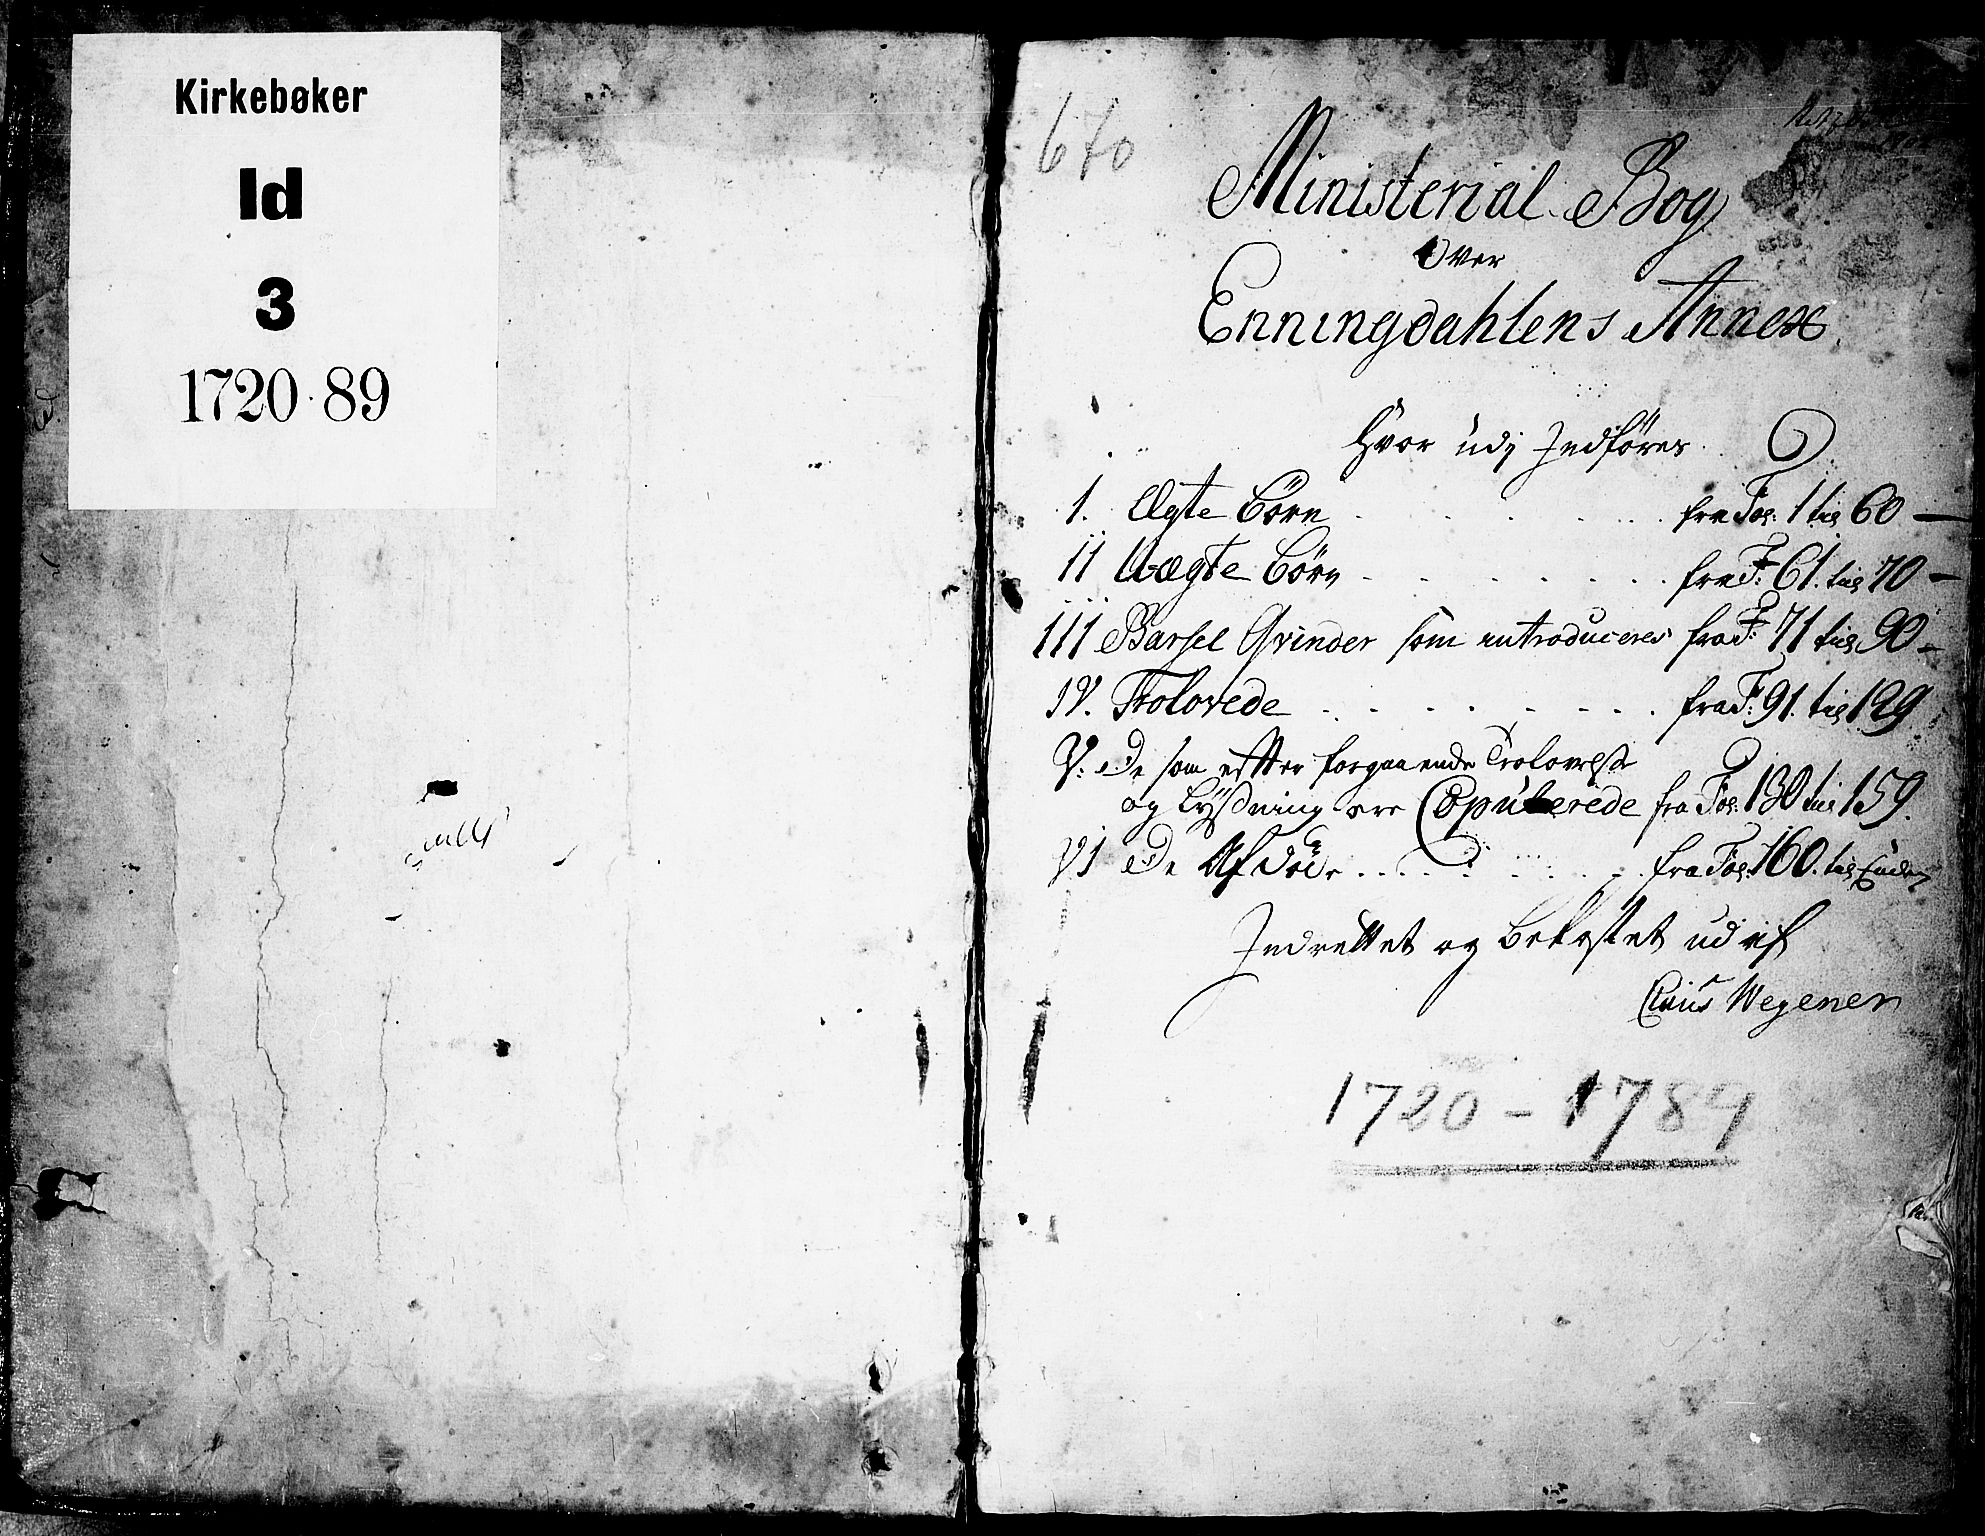 Kirkebøker
Id
3
1720-89
670
Ministerial Bog
Over
Enningdahlens Annex.
Hvor udj Indføres
1. Ægte Börn . . . . . . fra Fol: 1 til 60 —
II Uægte Börn . . . . . . . fra F: 61. til 70 —
III Barsel Qvinder som introduceres fra F: 71 til 90 —
IV. Trolovede . . . . . . . . fra F: 91. til 129
V: De som efter forgaaende Trolovelse
og Lysning ere Copulerede fra Fol: 130 til 159.
VI De Afdöde . . . . . . . . fra Fol: 160. til Enden
Indrettet og bekostet ud af
Claus Wegener
1720 - 1784